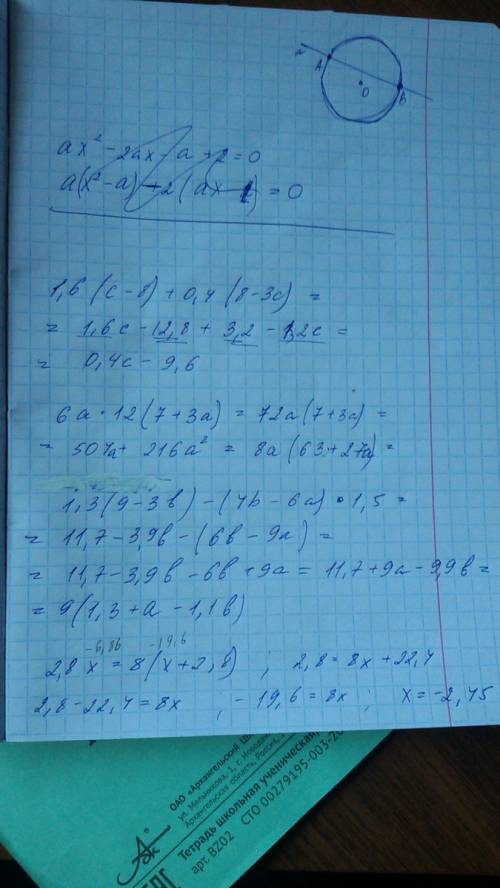 A
O
B
ax² - 2ax - a + 2 = 0
a(x² - a) + 2(ax - 1) = 0
1,6(c - 8) + 0,4(8 - 3c) =
= 1,6c - 12,8 + 3,2 - 1,2c =
= 0,4c - 9,6
6a · 12(7 + 3a) = 72a(7 + 3a) =
= 504a + 216a² = 8a(63 + 27a) =
1,3(9 - 3b) - (4b - 6a) · 1,5 =
= 11,7 - 3,9b - (6b - 9a) =
= 11,7 - 3,9b - 6b + 9a = 11,7 + 9a - 9,9b =
= 9(1,3 + a - 1,1b)
-6,86 -19,6
2,8x = 8(x + 2,8) ; 2,8 = 8x + 22,4
2,8 - 22,4 = 8x ; - 19,6 = 8x ; x = -2,45
ОАО «Архангельский
ул. Мельникова, 1, г. Новодвинск
Архангельская область, Россия,
Тетрадь школьная ученическая,
арт. BZ02 СТО 00279195-003-20